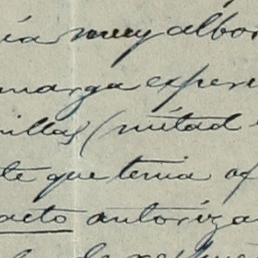 ía muy albor
marga experi
millas (mitad
te que tenia of
acto autoriza